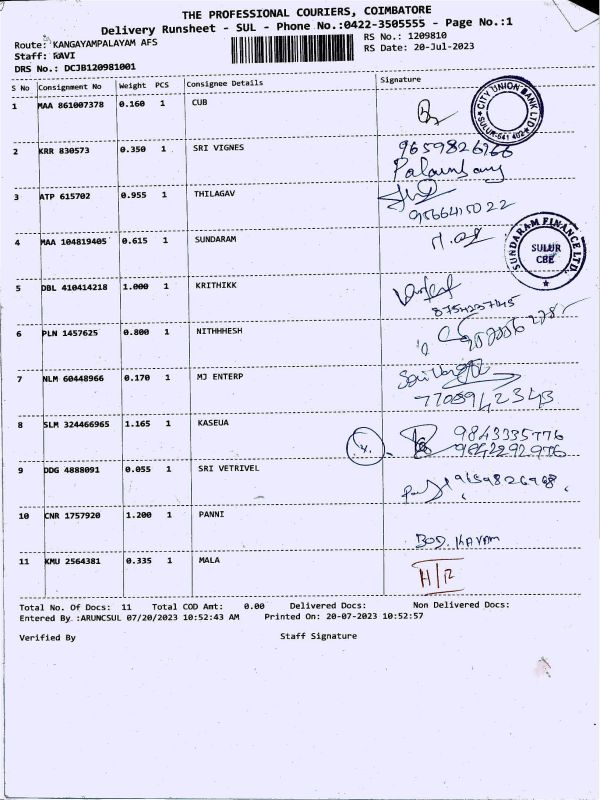 THE PROFESSIONAL COURIERS, COIMBATORE
Delivery Runsheet - SUL - Phone No.:0422-3505555 - Page No.:1
Route: KANGAYAMPALAYAM AFS RS No.: 1209810
Staff: RAVI RS Date: 20-Jul-2023
DRS No.: DCJB120981001
S No Consignment No Weight PCS Consignee Details Signature
1 MAA 861007378 0.160 1 CUB
CITY UNION BANK LTD
SULUR-641 402
2 KRR 830573 0.350 1 SRI VIGNES
3 ATP 615702 0.955 1 THILAGAV
4 MAA 104819405 0.615 1 SUNDARAM
SUNDARAM FINANCE LTD.
SULUR
CBE
5 DBL 410414218 1.000 1 KRITHIKK
6 PLN 1457625 0.800 1 NITHHHESH
7 NLM 60448966 0.170 1 MJ ENTERP
7708942343
8 SLM 324466965 1.165 1 KASEUA
9843335776
9 DDG 4888091 0.055 1 SRI VETRIVEL
10 CNR 1757920 1.200 1 PANNI
11 KMU 2564381 0.335 1 MALA
Total No. Of Docs: 11 Total COD Amt: 0.00 Delivered Docs: Non Delivered Docs:
Entered By :ARUNCSUL 07/20/2023 10:52:43 AM Printed On: 20-07-2023 10:52:57
Verified By Staff Signature